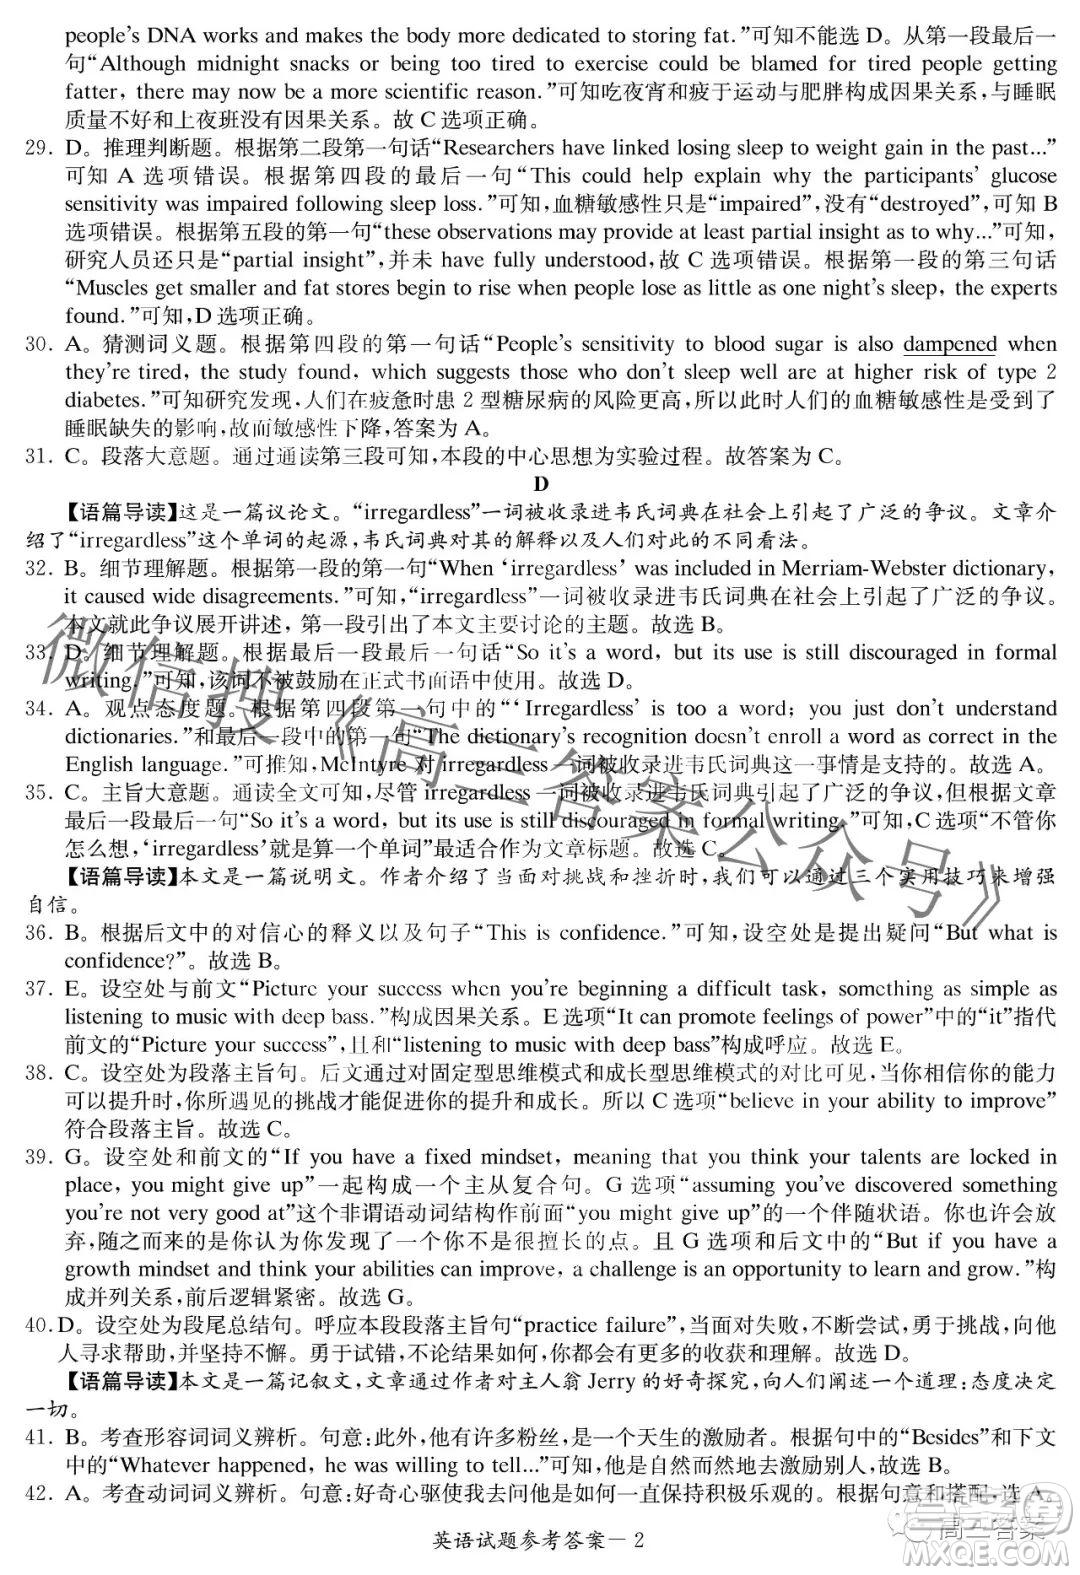 people's DNA works and makes the body more dedicated to storing fat.”可知不能选 D。从第一段最后一
句“Although midnight snacks or being too tired to exercise could be blamed for tired people getting
fatter, there may now be a more scientific reason.”可知吃夜宵和疲于运动与肥胖构成因果关系,与睡眠
质量不好和上夜班没有因果关系。故 C 选项正确。
29. D。推理判断题。根据第二段第一句话“Researchers have linked losing sleep to weight gain in the past...”
可知 A 选项错误。根据第四段的最后一句“This could help explain why the participants' glucose
sensitivity was impaired following sleep loss.”可知,血糖敏感性只是“impaired”,没有“destroyed”,可知 B
选项错误。根据第五段的第一句“these observations may provide at least partial insight as to why...”可知,
研究人员还只是“partial insight”,并未 have fully understood,故 C 选项错误。根据第一段的第三句话
“Muscles get smaller and fat stores begin to rise when people lose as little as one night's sleep, the experts
found.”可知,D 选项正确。
30. A。猜测词义题。根据第四段的第一句话“People's sensitivity to blood sugar is also dampened when
they're tired, the study found, which suggests those who don't sleep well are at higher risk of type 2
diabetes.”可知研究发现,人们在疲惫时患 2 型糖尿病的风险更高,所以此时人们的血糖敏感性是受到了
睡眠缺失的影响,故而敏感性下降,答案为 A。
31. C。段落大意题。通过通读第三段可知,本段的中心思想为实验过程。故答案为 C。
D
【语篇导读】这是一篇议论文。“irregardless”一词被收录进韦氏词典在社会上引起了广泛的争议。文章介
绍了“irregardless”这个单词的起源,韦氏词典对其的解释以及人们对此的不同看法。
32. B。细节理解题。根据第一段的第一句“When ‘irregardless’ was included in Merriam-Webster dictionary,
it caused wide disagreements.”可知,“irregardless”一词被收录进韦氏词典在社会上引起了广泛的争议。
本文就此争议展开讲述,第一段引出了本文主要讨论的主题。故选 B。
33. D。细节理解题。根据最后一段最后一句话“So it's a word, but its use is still discouraged in formal
writing.”可知,该词不被鼓励在正式书面语中使用。故选 D。
34. A。观点态度题。根据第四段第一句中的“‘Irregardless’ is too a word; you just don't understand
dictionaries.”和最后一段中的第一句“The dictionary's recognition doesn't enroll a word as correct in the
English language.”可推知,McIntyre 对 irregardless 一词被收录进韦氏词典这一事情是支持的。故选 A。
35. C。主旨大意题。通读全文可知,尽管 irregardless 一词被收录进韦氏词典引起了广泛的争议,但根据文章
最后一段最后一句“So it's a word, but its use is still discouraged in formal writing.”可知,C 选项“不管你
怎么想,‘irregardless’就是算一个单词”最适合作为文章标题。故选 C。
【语篇导读】本文是一篇说明文。作者介绍了当面对挑战和挫折时,我们可以通过三个实用技巧来增强
自信。
36. B。根据后文中的对信心的释义以及句子“This is confidence.”可知,设空处是提出疑问“But what is
confidence?”。故选 B。
37. E。设空处与前文“Picture your success when you're beginning a difficult task, something as simple as
listening to music with deep bass.”构成因果关系。E 选项“It can promote feelings of power”中的“it”指代
前文的“Picture your success”,且和“listening to music with deep bass”构成呼应。故选 E。
38. C。设空处为段落主旨句。后文通过对固定型思维模式和成长型思维模式的对比可见,当你相信你的能力
可以提升时,你所遇见的挑战才能促进你的提升和成长。所以 C 选项“believe in your ability to improve”
符合段落主旨。故选 C。
39. G。设空处和前文的“If you have a fixed mindset, meaning that you think your talents are locked in
place, you might give up”一起构成一个主从复合句。G 选项“assuming you've discovered something
you're not very good at”这个非谓语动词结构作前面“you might give up”的一个伴随状语。你也许会放
弃,随之而来的是你认为你发现了一个你不是很擅长的点。且 G 选项和后文中的“But if you have a
growth mindset and think your abilities can improve, a challenge is an opportunity to learn and grow.”构
成并列关系,前后逻辑紧密。故选 G。
40. D。设空处为段尾总结句。呼应本段段落主旨句“practice failure”,当面对失败,不断尝试,勇于挑战,向他
人寻求帮助,并坚持不懈。勇于试错,不论结果如何,你都会有更多的收获和理解。故选 D。
【语篇导读】本文是一篇记叙文,文章通过作者对主人翁 Jerry 的好奇探究,向人们阐述一个道理:态度决定
一切。
41. B。考查形容词词义辨析。句意:此外,他有许多粉丝,是一个天生的激励者。根据句中的“Besides”和下文
中的“Whatever happened, he was willing to tell...”可知,他是自然而然地去激励别人,故选 B。
42. A。考查动词词义辨析。句意:好奇心驱使我去问他是如何一直保持积极乐观的。根据句意和搭配,选 A。
英语试题参考答案— 2
微信搜《高三答案公众号》
高三答案
MXQE.COM